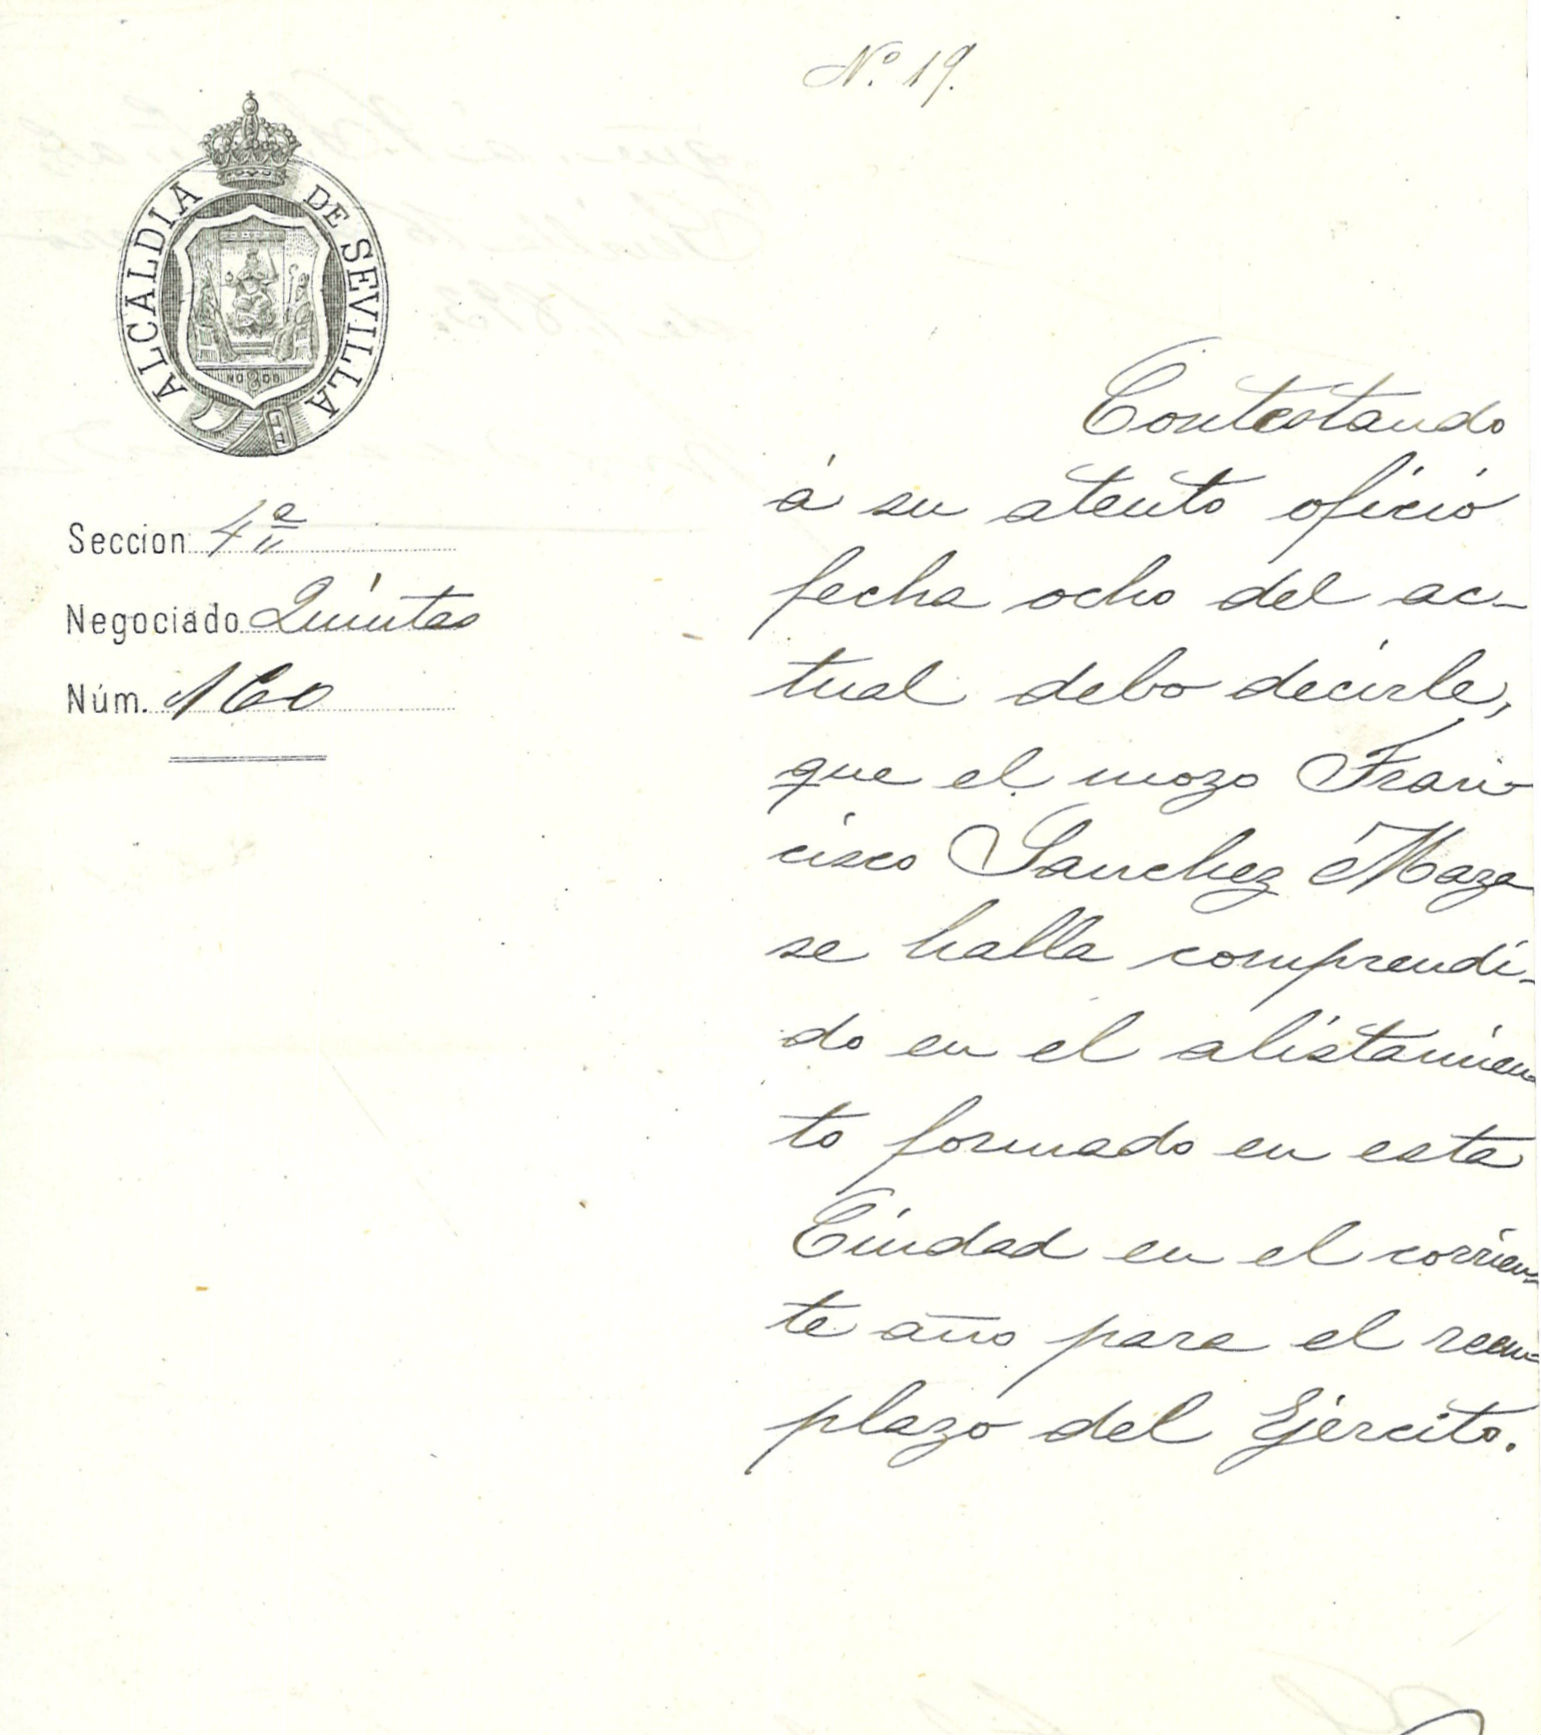 Nº. 19.
ALCALDIA DE SEVILLA
NO8DO
Seccion 4ª
Negociado Quintas
Núm. 160
Contestando
á su atento oficio
fecha ocho del ac-
tual debo decirle,
que el mozo Fran-
cisco Sanchez Maza
se halla comprendi-
do en el alistamien-
to formado en esta
Ciudad en el corrien-
te año para el reem-
plazo del Ejército.